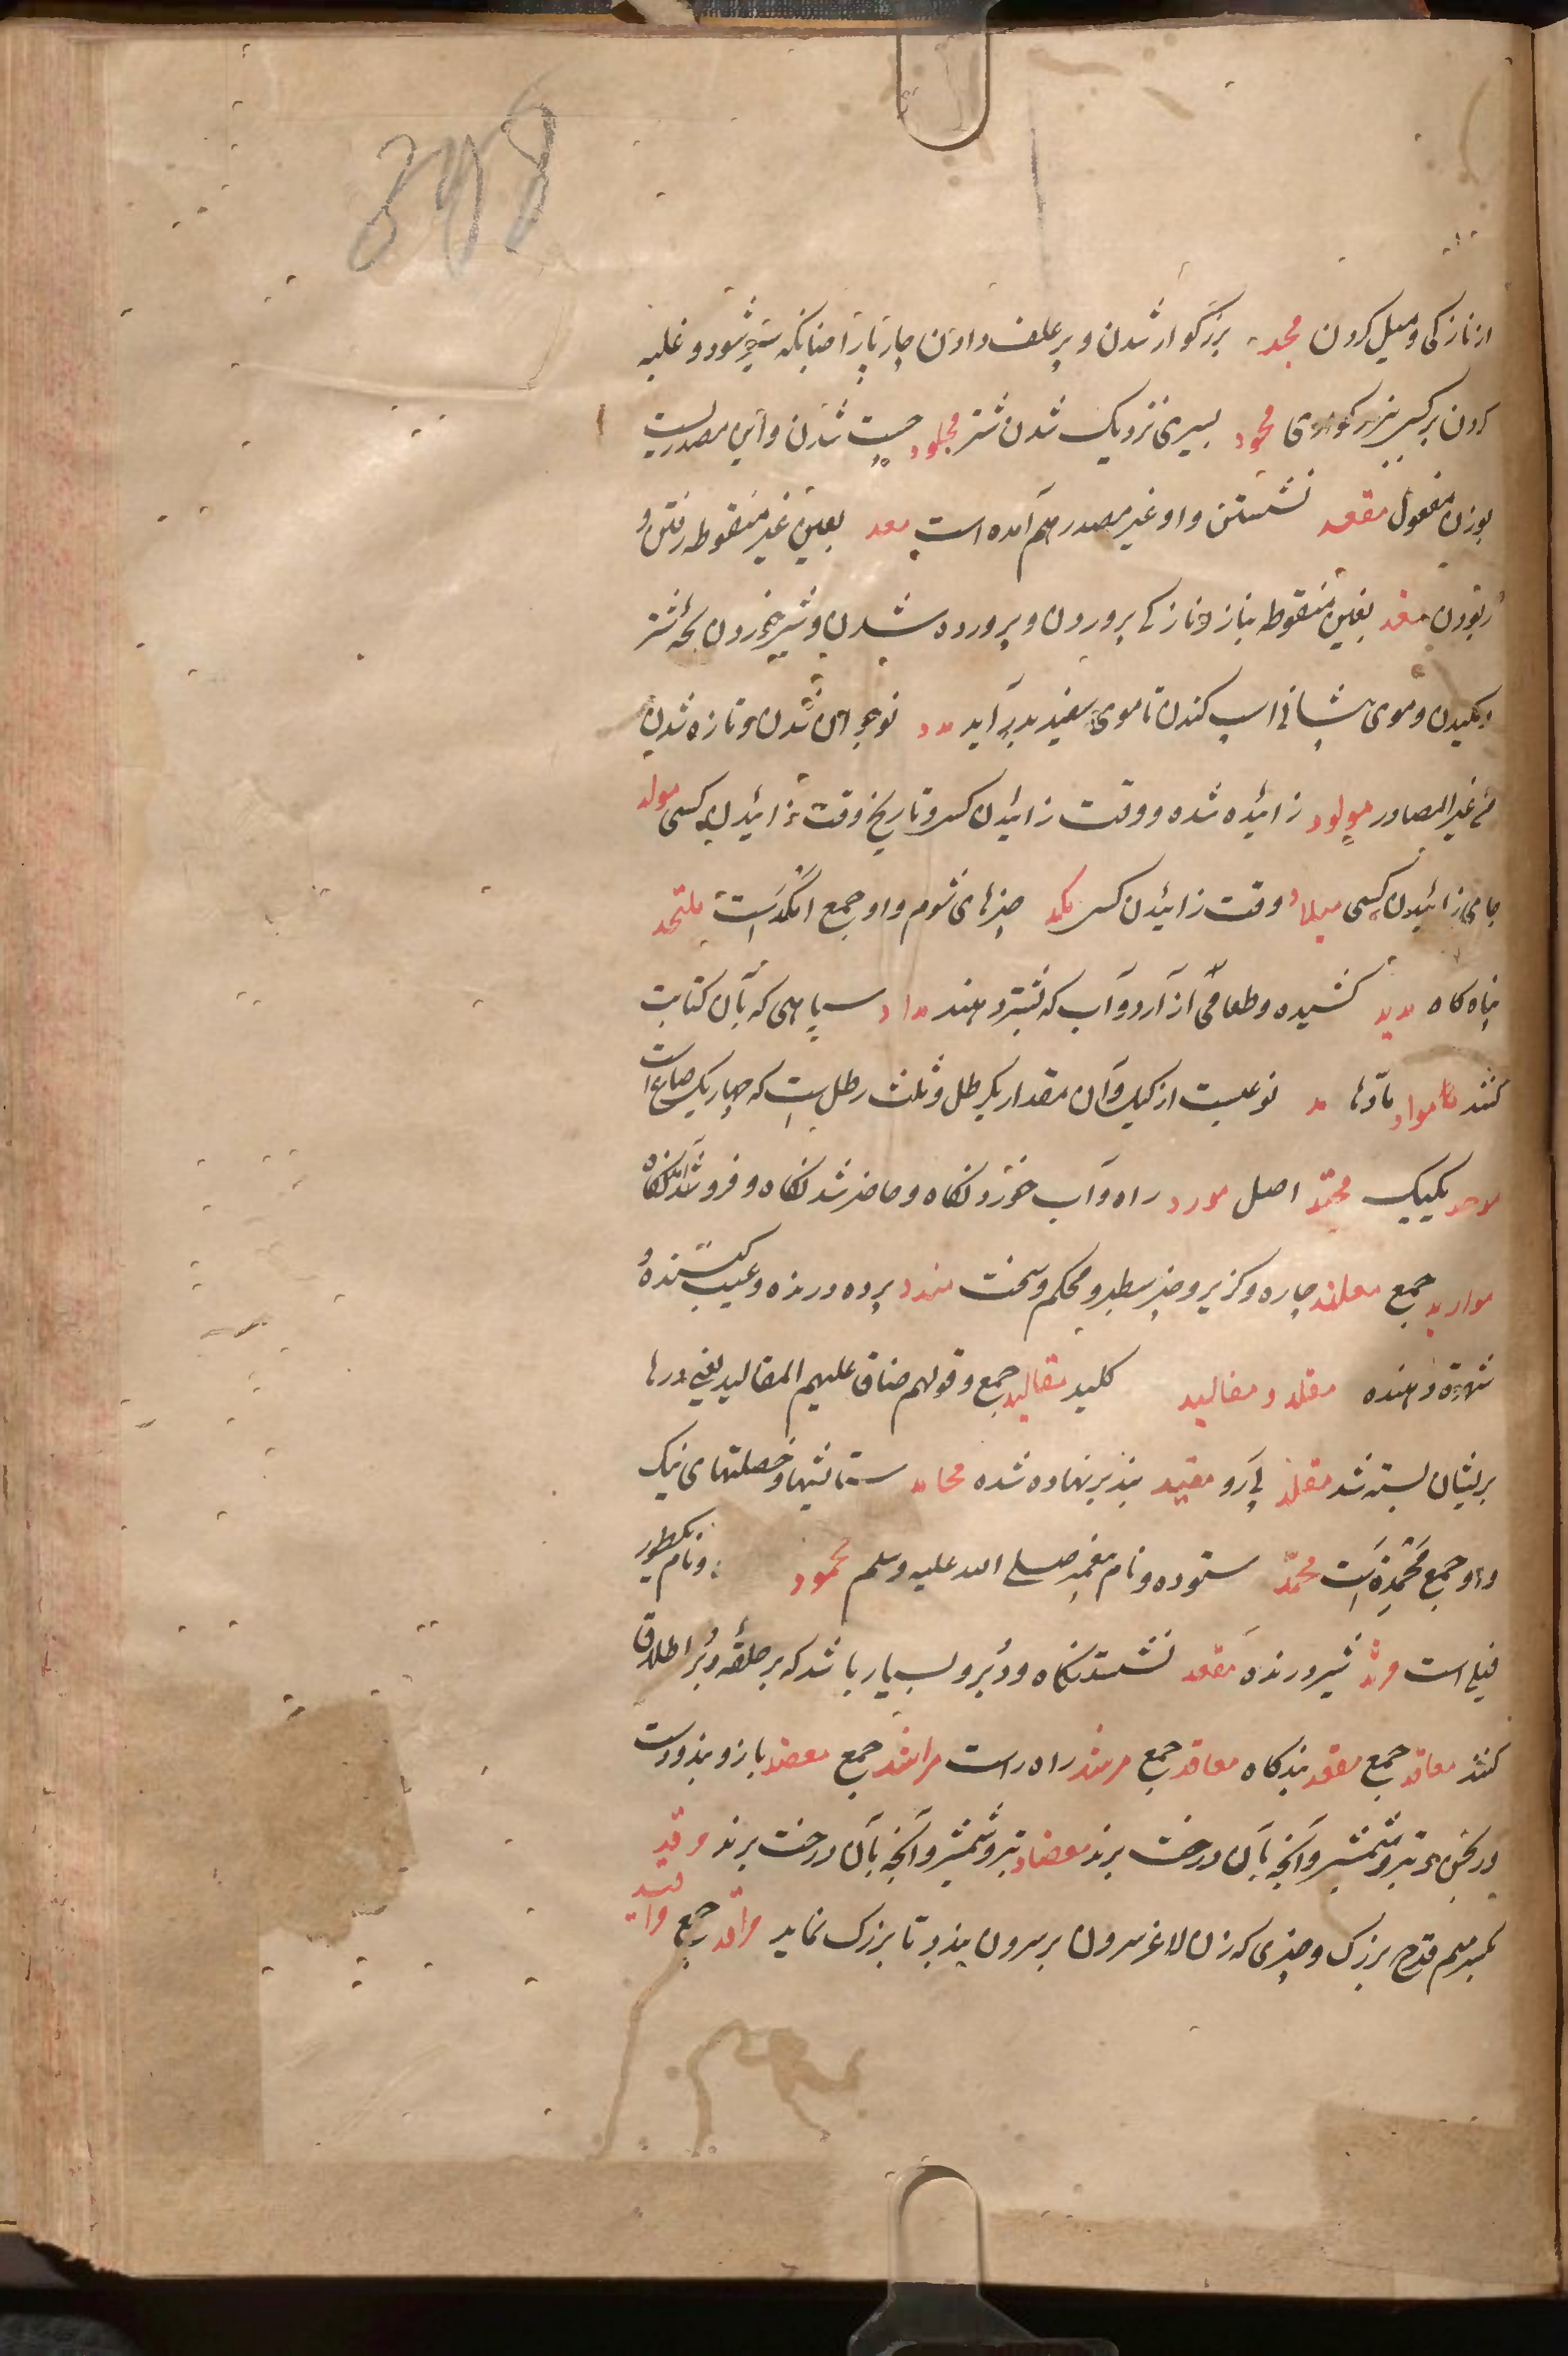 398
از نازکی و میل کردن مجد بزرگوار شدن و پر علف دادن چارپا را چنانکه سیر شود و غلبه
کردن بر کسی ببزرکواری مجود بسیری نزدیک شدن شتر مجلود چست شدن و این مصدریست
بوزن مفعول مقعد نشستن و او غیر مصدر هم آمده است معد بعین غیر منقوطه رفتن و
ربودن مغد بغین منقوطه بناز و نازکی پروردن و پرورده شدن و شیر خوردن بچۀ شتر
و مکیدن و موی پیشانی اسپ کندن تا موی سفید بدر آید مد نوجوان شدن و تازه شدن
من غیر المصادر مولود زائیده شده و وقت زائیدن کسی و تاریخ وقت زائیدن کسی مولد
جای زائیدن کسی میلاد وقت زائیدن کسی مکد چیزهای شوم و او جمع انکد است ملتحد
پناه کاه مدید کشیده و طعامی از آرد و آب که بشتر دهند مداد سیاهی که بآن کتابت
کنند مواد مادّها مد نوعیست از کیل و آن مقدار یکرطل و ثلث رطل است که چهار یک صاع است
موحد یکیک محتد اصل مورد راه و آب خوردنکاه و حاضر شدنکاه و فرو شدنکاه
موارد جمع معلند چاره و کزیر و چیز سطبر و محکم و سخت مندد پرده درنده و عیب کننده
شهرت دهنده مقلد و مقالید کلید مقالید جمع و قولهم ضاق علیهم المقالید یعنی درها
بریشان بسته شد مقلد پی رو مقید بند بر نهاده شده محامد ستائشها و خصلتهای نیک
و او جمع مَحْمِدَة است محمّد ستوده و نام پیغمبر صلی الله علیه وسلم محمود و نام یکطور
فیل است مرثد شیر درنده مقعد نشستنکاه و دُبر و بسیار باشد که بر حلقۀ دبُر اطلاق
کنند مقاعد جمع معقد بندکاه معاقد جمع مرشد راه راست مراشد جمع معضد بازوبند و دست
ورنجن و تبر و شمشیر و آنچه بآن درخت برند معضاد تبر و شمشیر و آنچه بآن درخت برند مرفد
بکسر میم قدح بزرک و چیزی که زن لاغر سرون بر سرون بندد تا بزرک نماید مرافد جمع